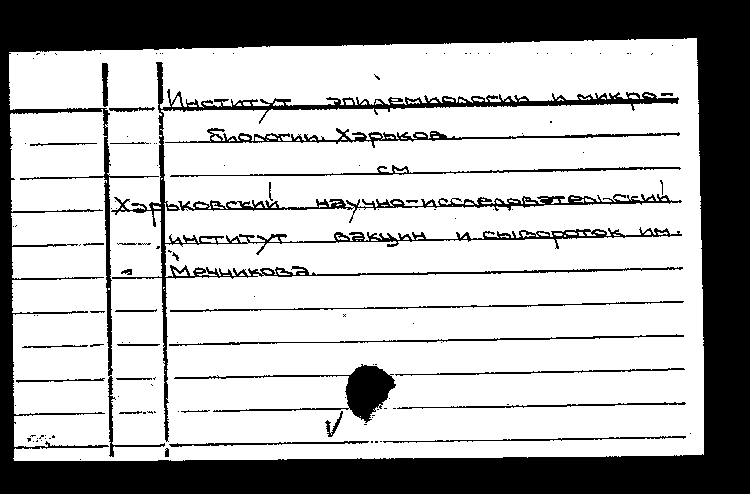 Институт эпидемиологии и микро-
биологии. Харьков.
см
Харьковский научно-исследовательский
институт вакцин и сывороток им.
Мечникова.